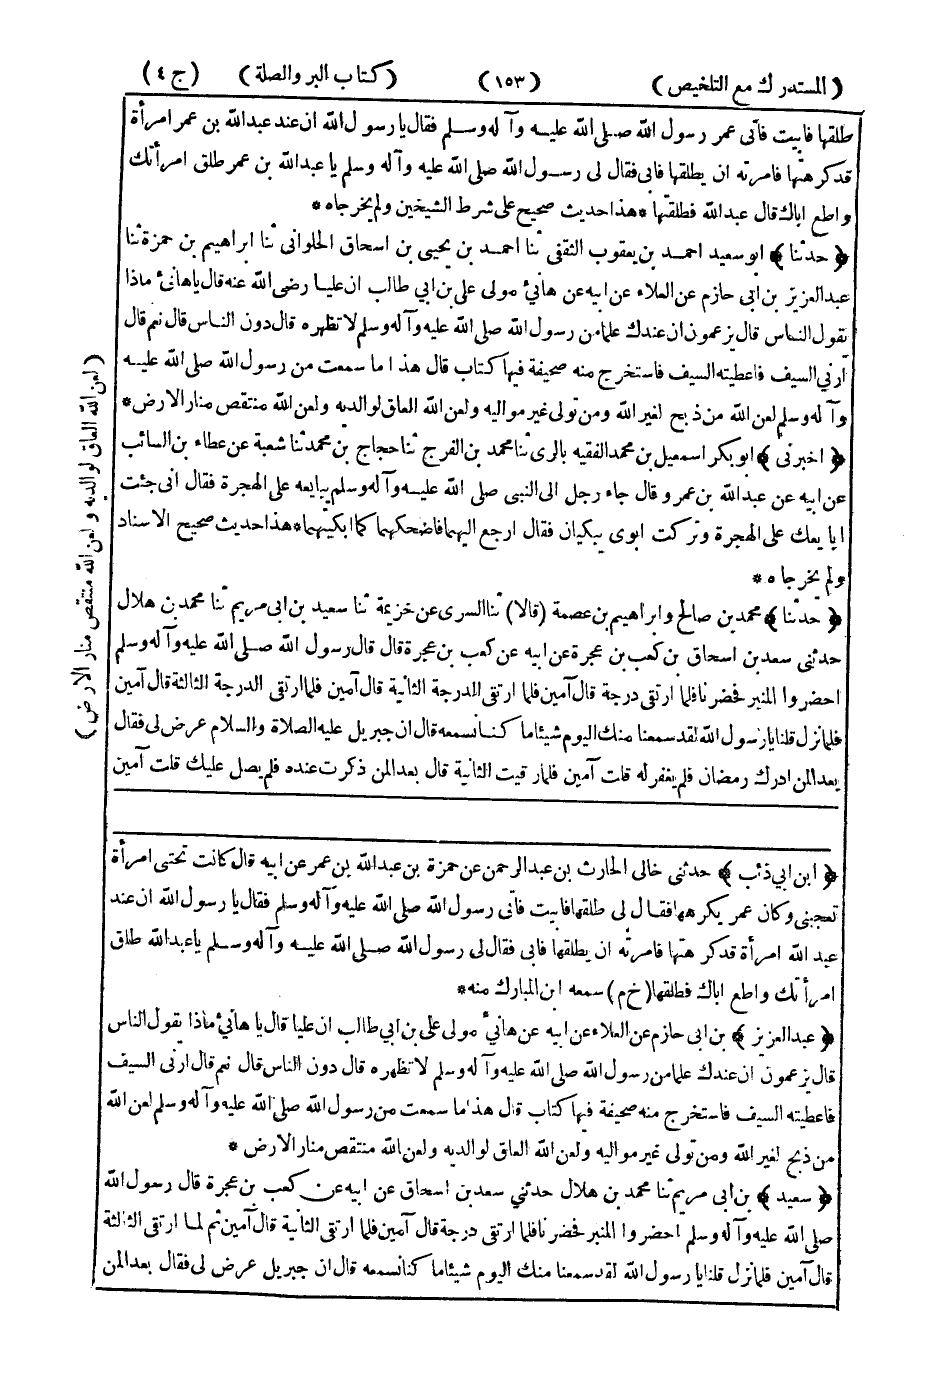 (المستدرك مع التلخيص) (١٥٣) (كتاب البر والصلة) (ج ٤)
طلقها فابيت فأتى عمر رسول الله صلى الله عليه وآله وسلم فقال يا رسول الله ان عند عبدالله بن عمر امرأة
قد كرهتها فامرته ان يطلقها فابى فقال لى رسول الله صلى الله عليه وآله وسلم يا عبدالله بن عمر طلق امرأتك
واطع اباك قال عبدالله فطلقتها * هذا حديث صحيح على شرط الشيخين ولم يخرجاه *
﴿ حدثنا ﴾ ابو سعيد احمد بن يعقوب الثقفى ثنا احمد بن يحيى بن اسحاق الحلوانى ثنا ابراهيم بن حمزة ثنا
عبدالعزيز بن ابى حازم عن العلاء عن ابيه عن هانئ مولى على بن ابي طالب ان عليا رضى الله عنه قال يا هانئ ماذا
يقول الناس قال يزعمون ان عندك علما من رسول الله صلى الله عليه وآله وسلم لا تظهره قال دون الناس قال نعم قال
أرني السيف فاعطيته السيف فاستخرج منه صحيفة فيها كتاب قال هذا ما سمعت من رسول الله صلى الله عليه
وآله وسلم لعن الله من ذبح لغير الله ومن تولى غير مواليه ولعن الله العاق لوالديه ولعن الله منتقص منار الارض *
﴿ اخبرنى ﴾ ابو بكر اسمعيل بن محمد الفقيه بالرى ثنا محمد بن الفرج ثنا حجاج بن محمد ثنا شعبة عن عطاء بن السائب
عن ابيه عن عبدالله بن عمرو قال جاء رجل الى النبى صلى الله عليه وآله وسلم يبايعه على الهجرة فقال انى جئت
ابايعك على الهجرة وتركت ابوى يبكيان فقال ارجع اليهما فاضحكهما كما ابكيتهما * هذا حديث صحيح الاسناد
ولم يخرجاه *
﴿ حدثنا ﴾ محمد بن صالح وابراهيم بن عصمة (قالا) ثنا السرى عن خزيمة ثنا سعيد بن ابى مريم ثنا محمد بن هلال
حدثنى سعد بن اسحاق بن كعب بن عجرة عن ابيه عن كعب بن عجرة قال قال رسول الله صلى الله عليه وآله وسلم
احضروا المنبر فحضرنا فلما ارتقى درجة قال آمين فلما ارتقى الدرجة الثانية قال آمين فلما ارتقى الدرجة الثالثة قال آمين
فلما نزل قلنا يا رسول الله لقد سمعنا منك اليوم شيئا ما كنا نسمعه قال ان جبريل عليه الصلاة والسلام عرض لى فقال
بعد المن ادرك رمضان فلم يغفر له قلت آمين فلما رقيت الثانية قال بعد المن ذكرت عنده فلم يصل عليك قلت آمين
(لعن الله العاق لوالديه ولعن الله منتقص منار الارض)
﴿ ابن ابي ذئب ﴾ حدثنى خالى الحارث بن عبدالرحمن عن حمزة بن عبدالله بن عمر عن ابيه قال كانت تحتى امرأة
تعجبنى وكان عمر يكرهها فقال لى طلقها فابيت فاتى رسول الله صلى الله عليه وآله وسلم فقال يا رسول الله ان عند
عبد الله امرأة قد كرهتها فامرته ان يطلقها فابى فقال لى رسول الله صلى الله عليه وآله وسلم يا عبدالله طلق
امرأتك واطع اباك فطلقها (خ م) سمعه ابن المبارك منه *
﴿ عبدالعزيز ﴾ بن ابى حازم عن العلاء عن ابيه عن هانئ مولى على بن ابي طالب ان عليا قال يا هانئ ماذا يقول الناس
قال يزعمون ان عندك علما من رسول الله صلى الله عليه وآله وسلم لا تظهره قال دون الناس قال نعم قال ارنى السيف
فاعطيته السيف فاستخرج منه صحيفة فيها كتاب قال هذا ما سمعت من رسول الله صلى الله عليه وآله وسلم لعن الله
من ذبح لغير الله ومن تولى غير مواليه ولعن الله العاق لوالديه ولعن الله منتقص منار الارض *
﴿ سعيد ﴾ بن ابى مريم ثنا محمد بن هلال حدثني سعد بن اسحاق عن ابيه عن كعب بن عجرة قال رسول الله
صلى الله عليه وآله وسلم احضروا المنبر فحضرنا فلما ارتقى درجة قال آمين فلما ارتقى الثانية قال آمين ثم لما ارتقى الثالثة
قال آمين فلما نزل قلنا يا رسول الله لقد سمعنا منك اليوم شيئا ما كنا نسمعه قال ان جبريل عرض لى فقال بعد المن